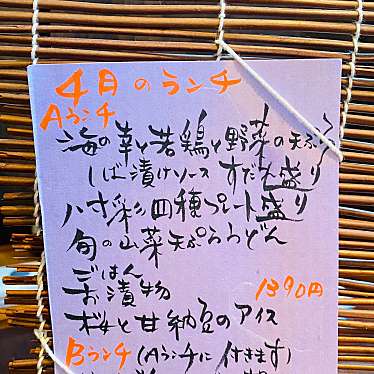 4月のランチ
Aランチ
海の幸と若鶏と野菜の天ぷら
しば漬けソース すだれ盛り
八寸彩四種プレート盛り
旬の山菜天ぷらうどん
ごはん
お漬物 1390円
桜と甘納豆のアイス
Bランチ(Aランチに付きます)